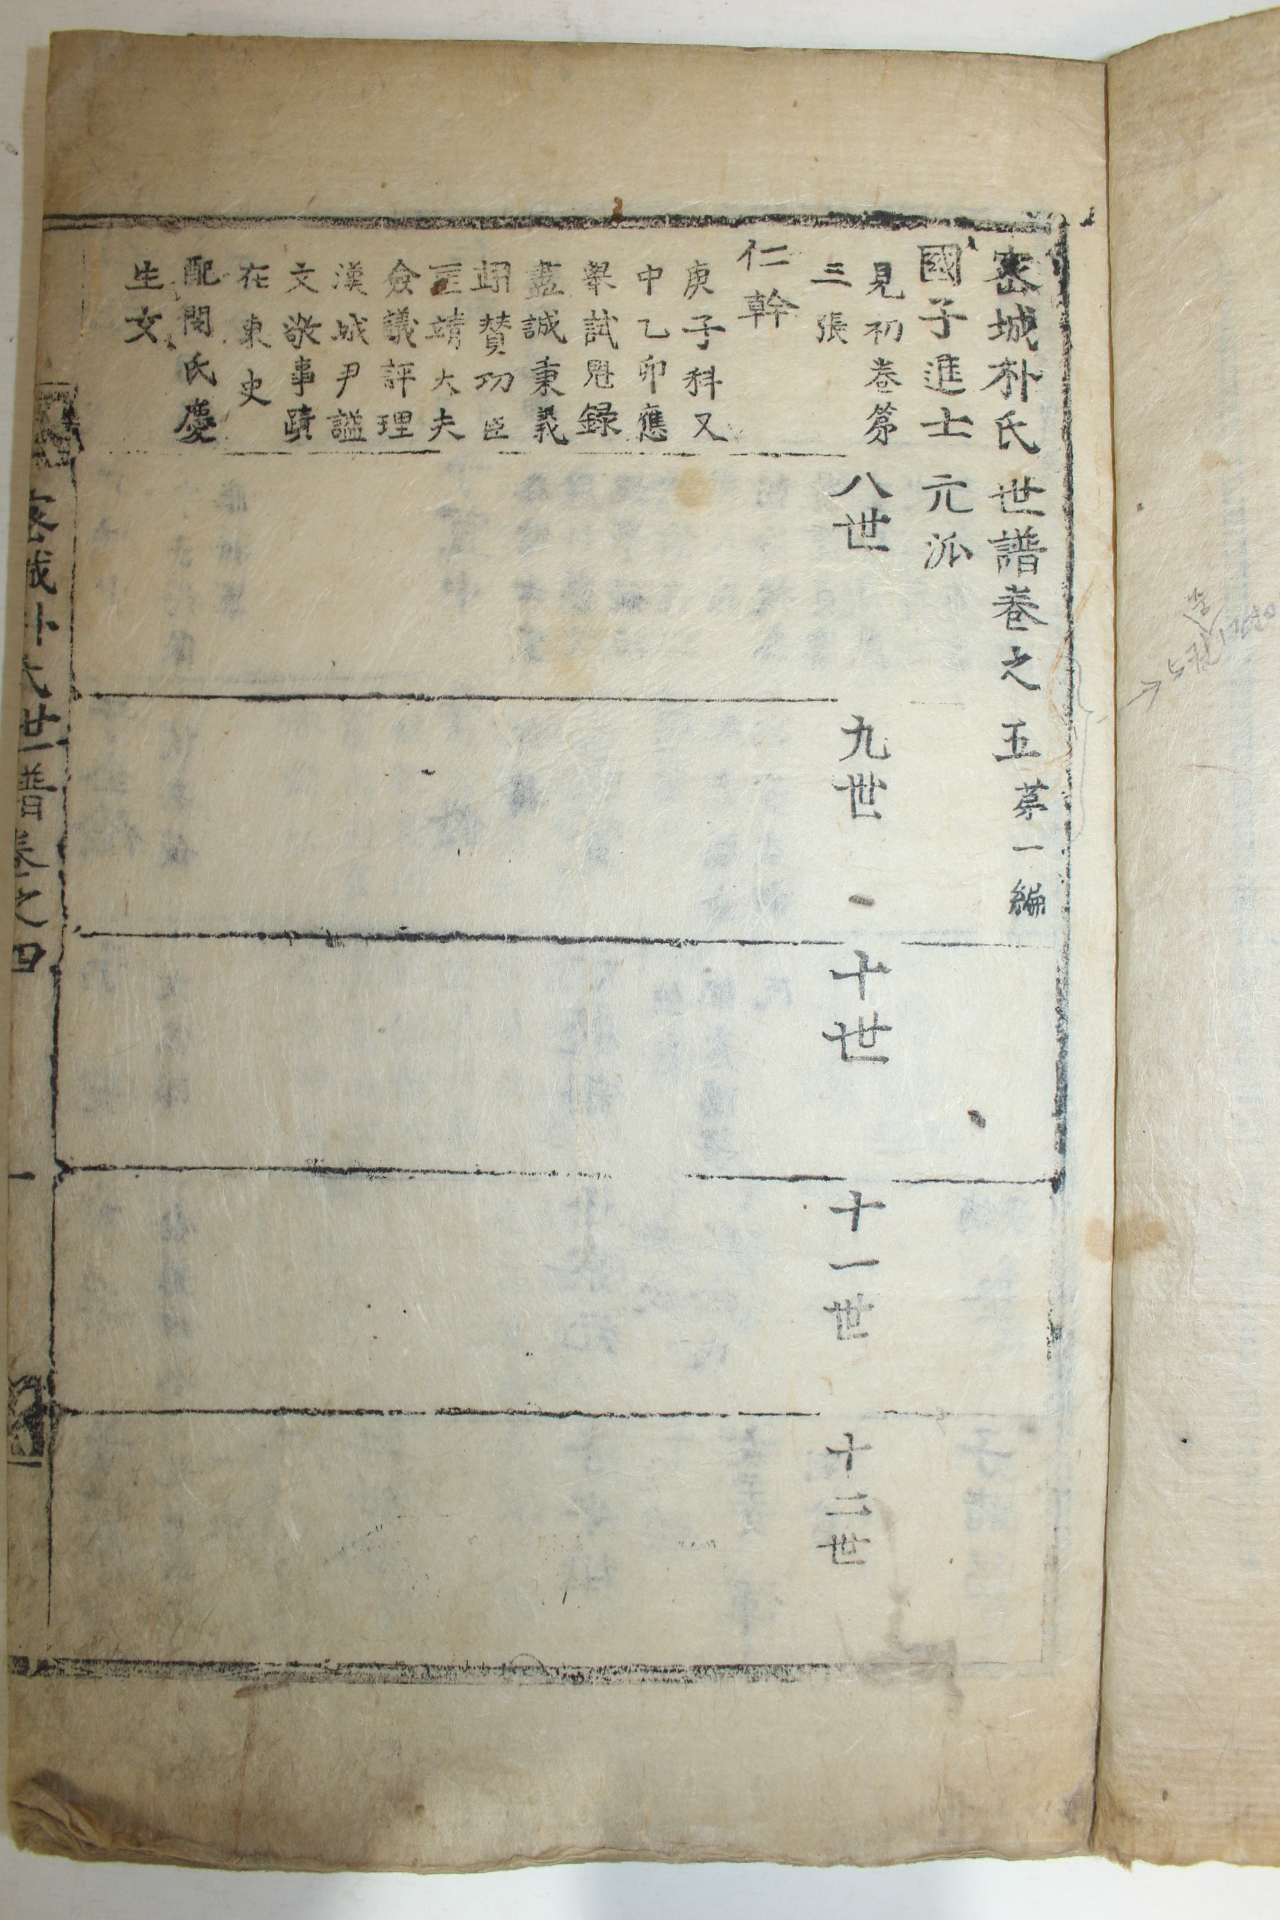 密城朴氏世譜卷之五第一編
國子進士元派
見初卷第
三張
八世
九世
十世
十一世
十二世
仁幹
庚子科又
中乙卯應
擧試魁録
盡誠秉義
翊賛功臣
匡靖大夫
僉議評理
漢城尹謚
文敬事蹟
在東史
配閔氏慶
生女
密城朴氏世譜卷之四
一